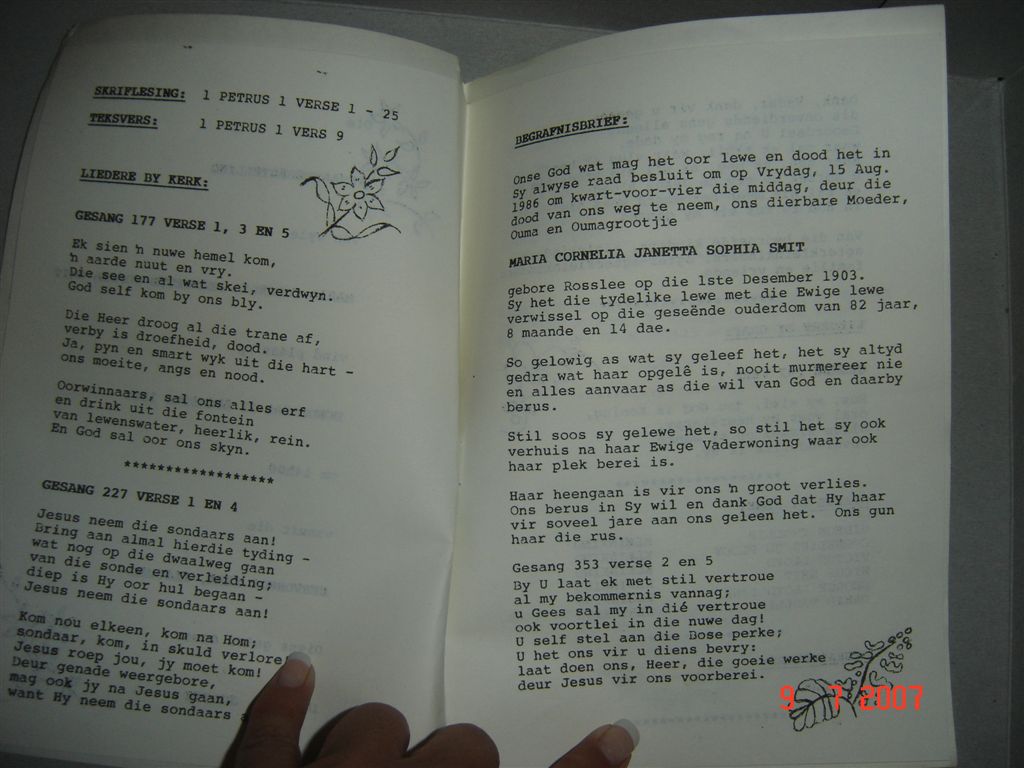 SKRIFLESING: 1 PETRUS 1 VERSE 1 - 25
TEKSVERS: 1 PETRUS 1 VERS 9
LIEDERE BY KERK:
GESANG 177 VERSE 1, 3 EN 5
Ek sien 'n nuwe hemel kom,
'n aarde nuut en vry.
Die see en al wat skei, verdwyn.
God self kom by ons bly.
Die Heer droog al die trane af,
verby is droefheid, dood.
Ja, pyn en smart wyk uit die hart -
ons moeite, angs en nood.
Oorwinnaars, sal ons alles erf
en drink uit die fontein
van lewenswater, heerlik, rein.
En God sal oor ons skyn.
******************
GESANG 227 VERSE 1 EN 4
Jesus neem die sondaars aan!
Bring aan almal hierdie tyding -
wat nog op die dwaalweg gaan
van die sonde en verleiding;
diep is Hy oor hul begaan -
Jesus neem die sondaars aan!
Kom nou elkeen, kom na Hom;
sondaar, kom, in skuld verlore
Jesus roep jou, jy moet kom!
Deur genade weergebore,
mag ook jy na Jesus gaan,
want Hy neem die sondaars a
BEGRAFNISBRIEF:
Onse God wat mag het oor lewe en dood het in
Sy alwyse raad besluit om op Vrydag, 15 Aug.
1986 om kwart-voor-vier die middag, deur die
dood van ons weg te neem, ons dierbare Moeder,
Ouma en Oumagrootjie
MARIA CORNELIA JANETTA SOPHIA SMIT
gebore Rosslee op die 1ste Desember 1903.
Sy het die tydelike lewe met die Ewige lewe
verwissel op die geseënde ouderdom van 82 jaar,
8 maande en 14 dae.
So gelowig as wat sy geleef het, het sy altyd
gedra wat haar opgelê is, nooit murmereer nie
en alles aanvaar as die wil van God en daarby
berus.
Stil soos sy gelewe het, so stil het sy ook
verhuis na haar Ewige Vaderwoning waar ook
haar plek berei is.
Haar heengaan is vir ons 'n groot verlies.
Ons berus in Sy wil en dank God dat Hy haar
vir soveel jare aan ons geleen het. Ons gun
haar die rus.
Gesang 353 verse 2 en 5
By U laat ek met stil vertroue
al my bekommernis vannag;
u Gees sal my in dié vertroue
ook voortlei in die nuwe dag!
U self stel aan die Bose perke;
U het ons vir u diens bevry:
laat doen ons, Heer, die goeie werke
deur Jesus vir ons voorberei.
9 7 2007